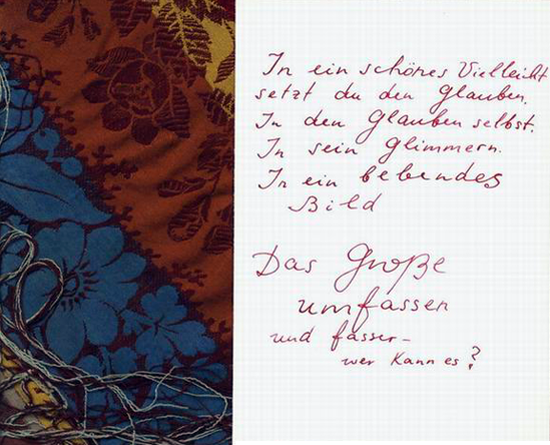 In ein schönes Vielleicht
setzt du den Glauben.
In den Glauben selbst.
In sein Glimmern.
In ein bebendes
Bild
Das Große
umfassen
und fassen –
wer kann es?